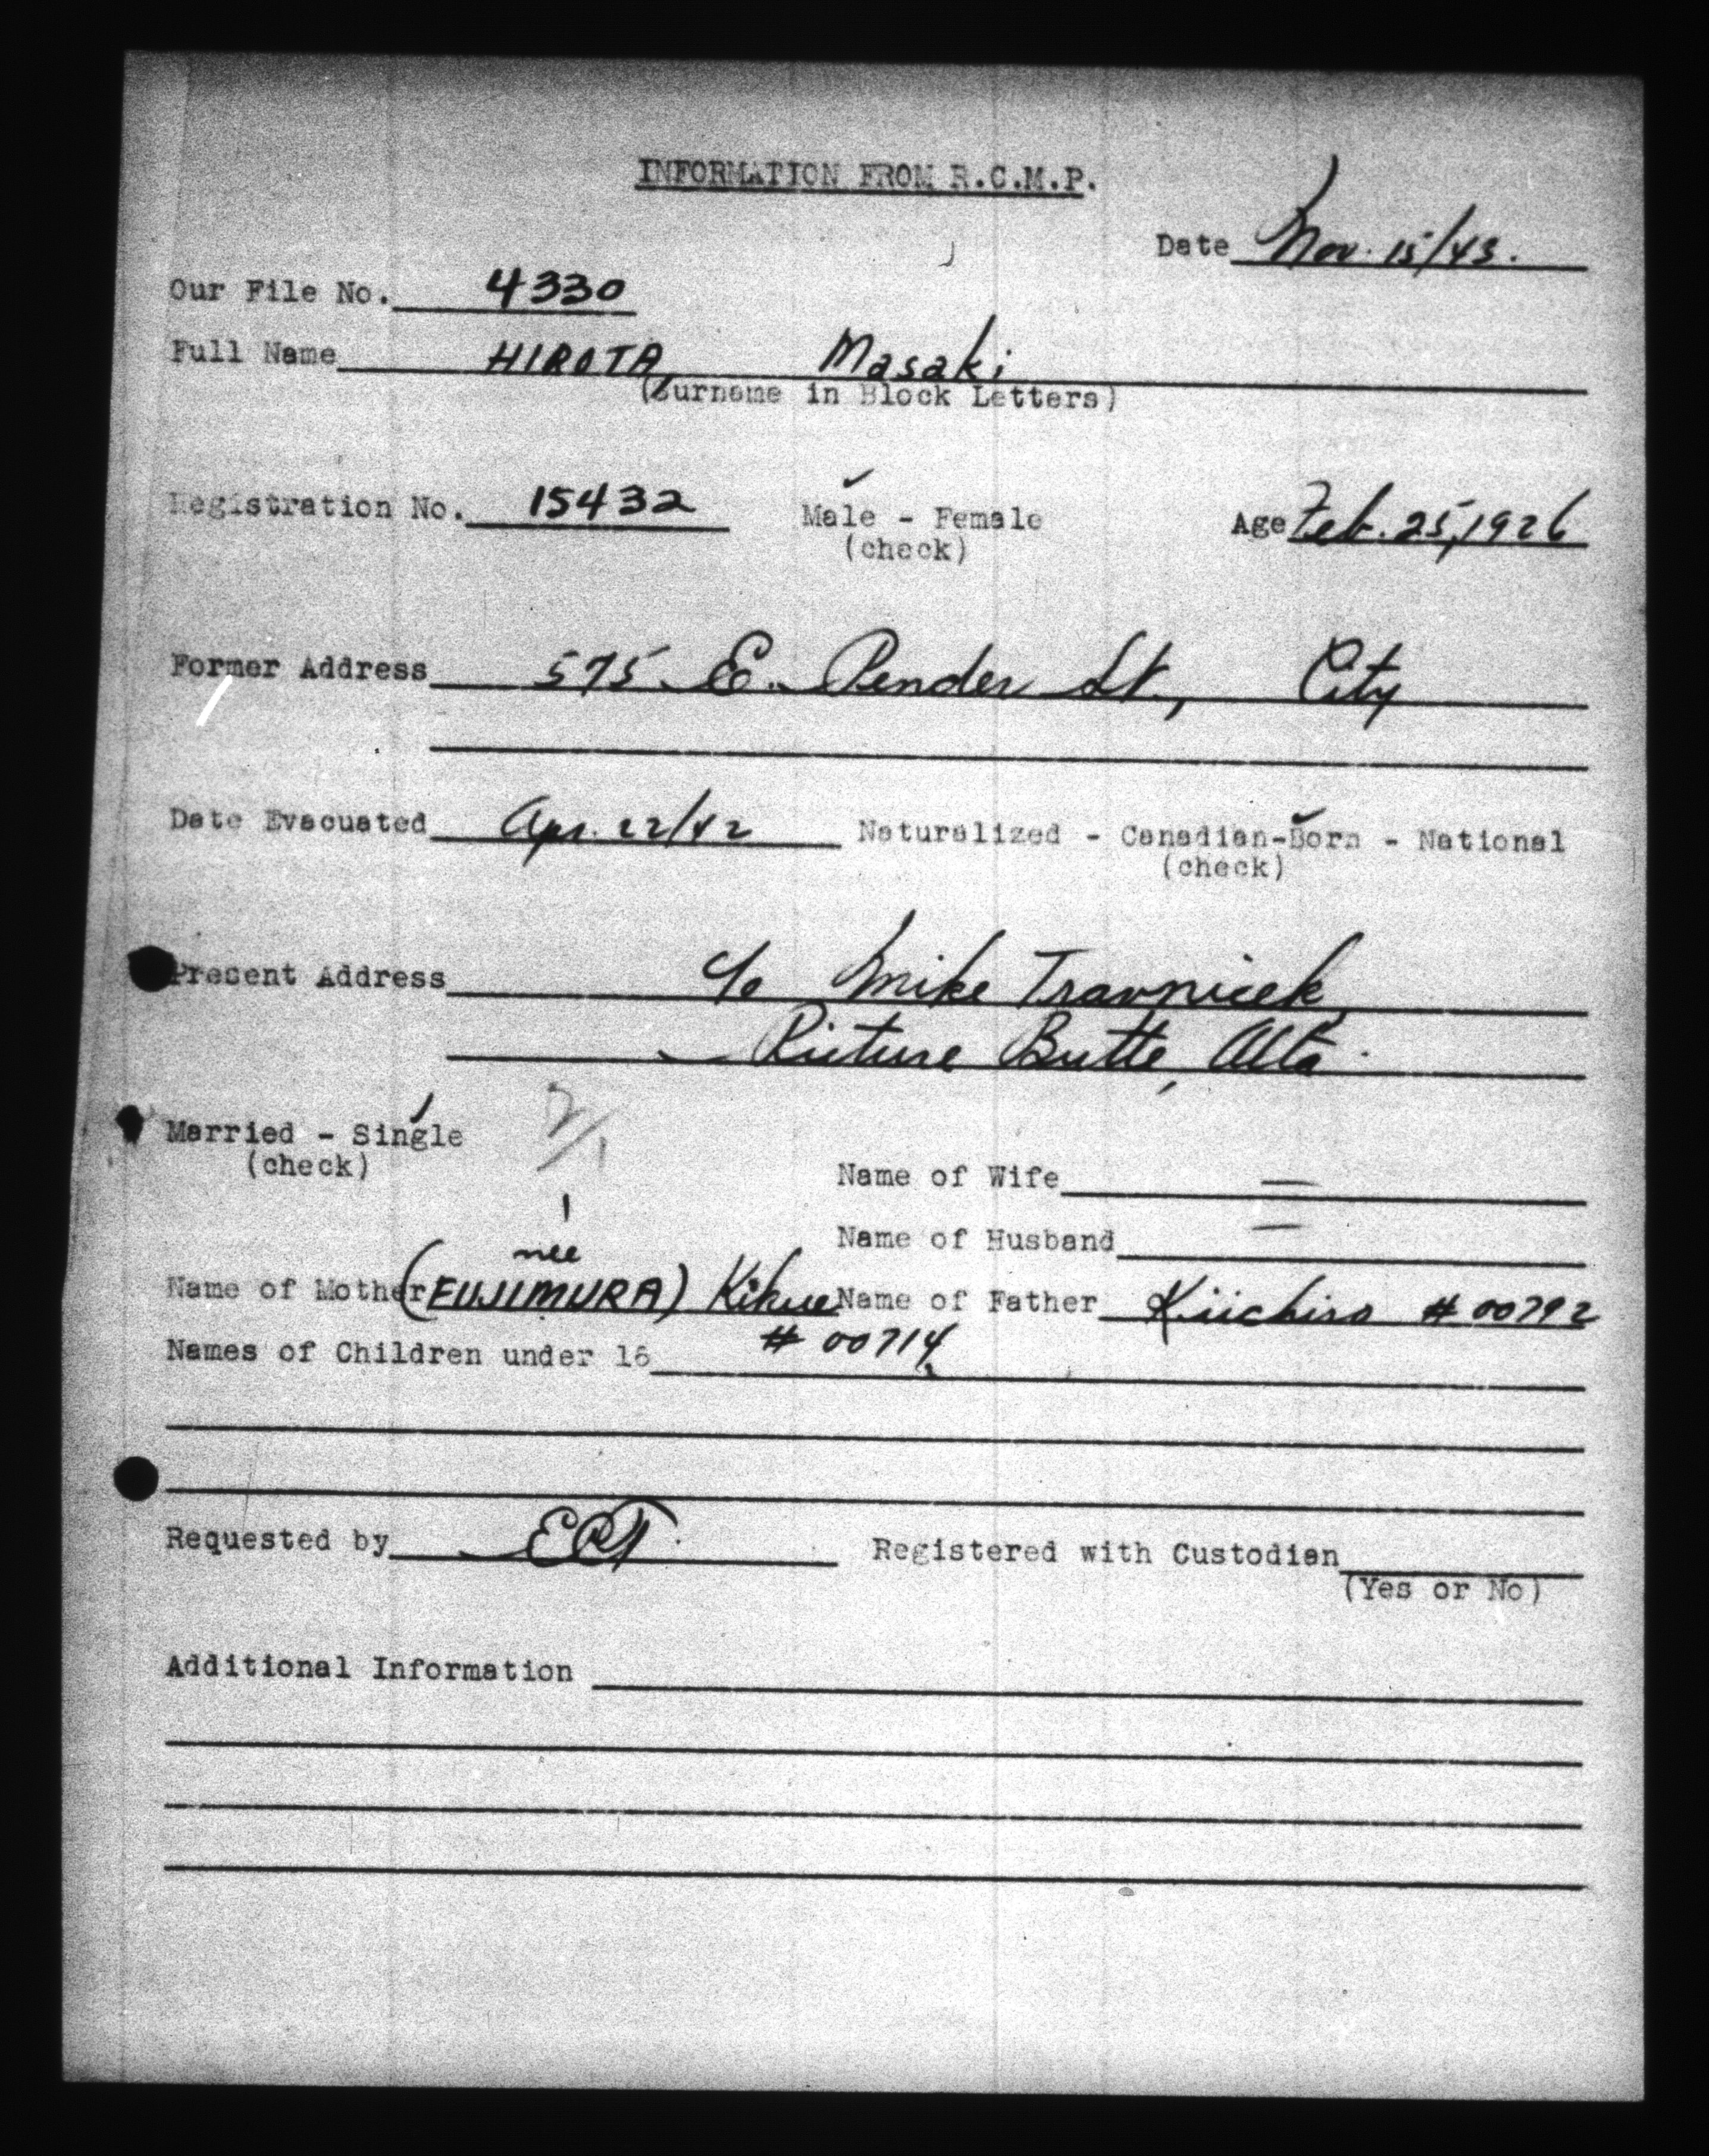 INFORMATION FROM R.C.M.P.
Date Nov. 15/43.
Our File No. 4330
Full Name HIROTA, Masaki
(Surname in Block Letters)
Registration No. 15432 Male - Female Age Feb. 25, 1926
(check)
Former Address 575 E. Pender St., City
Date Evacuated Apr. 22/42 Naturalized - Canadian-Born - National
(check)
Present Address c/o Mike Travnicek,
Picture Butte, Alta.
Married - Single
(check)
Name of Wife —
Name of Husband —
nee
Name of Mother (FUJIMURA) Kikue Name of Father Kiichiro # 00792
Names of Children under 16 # 00714
Requested by Registered with Custodian
(Yes or No)
Additional Information